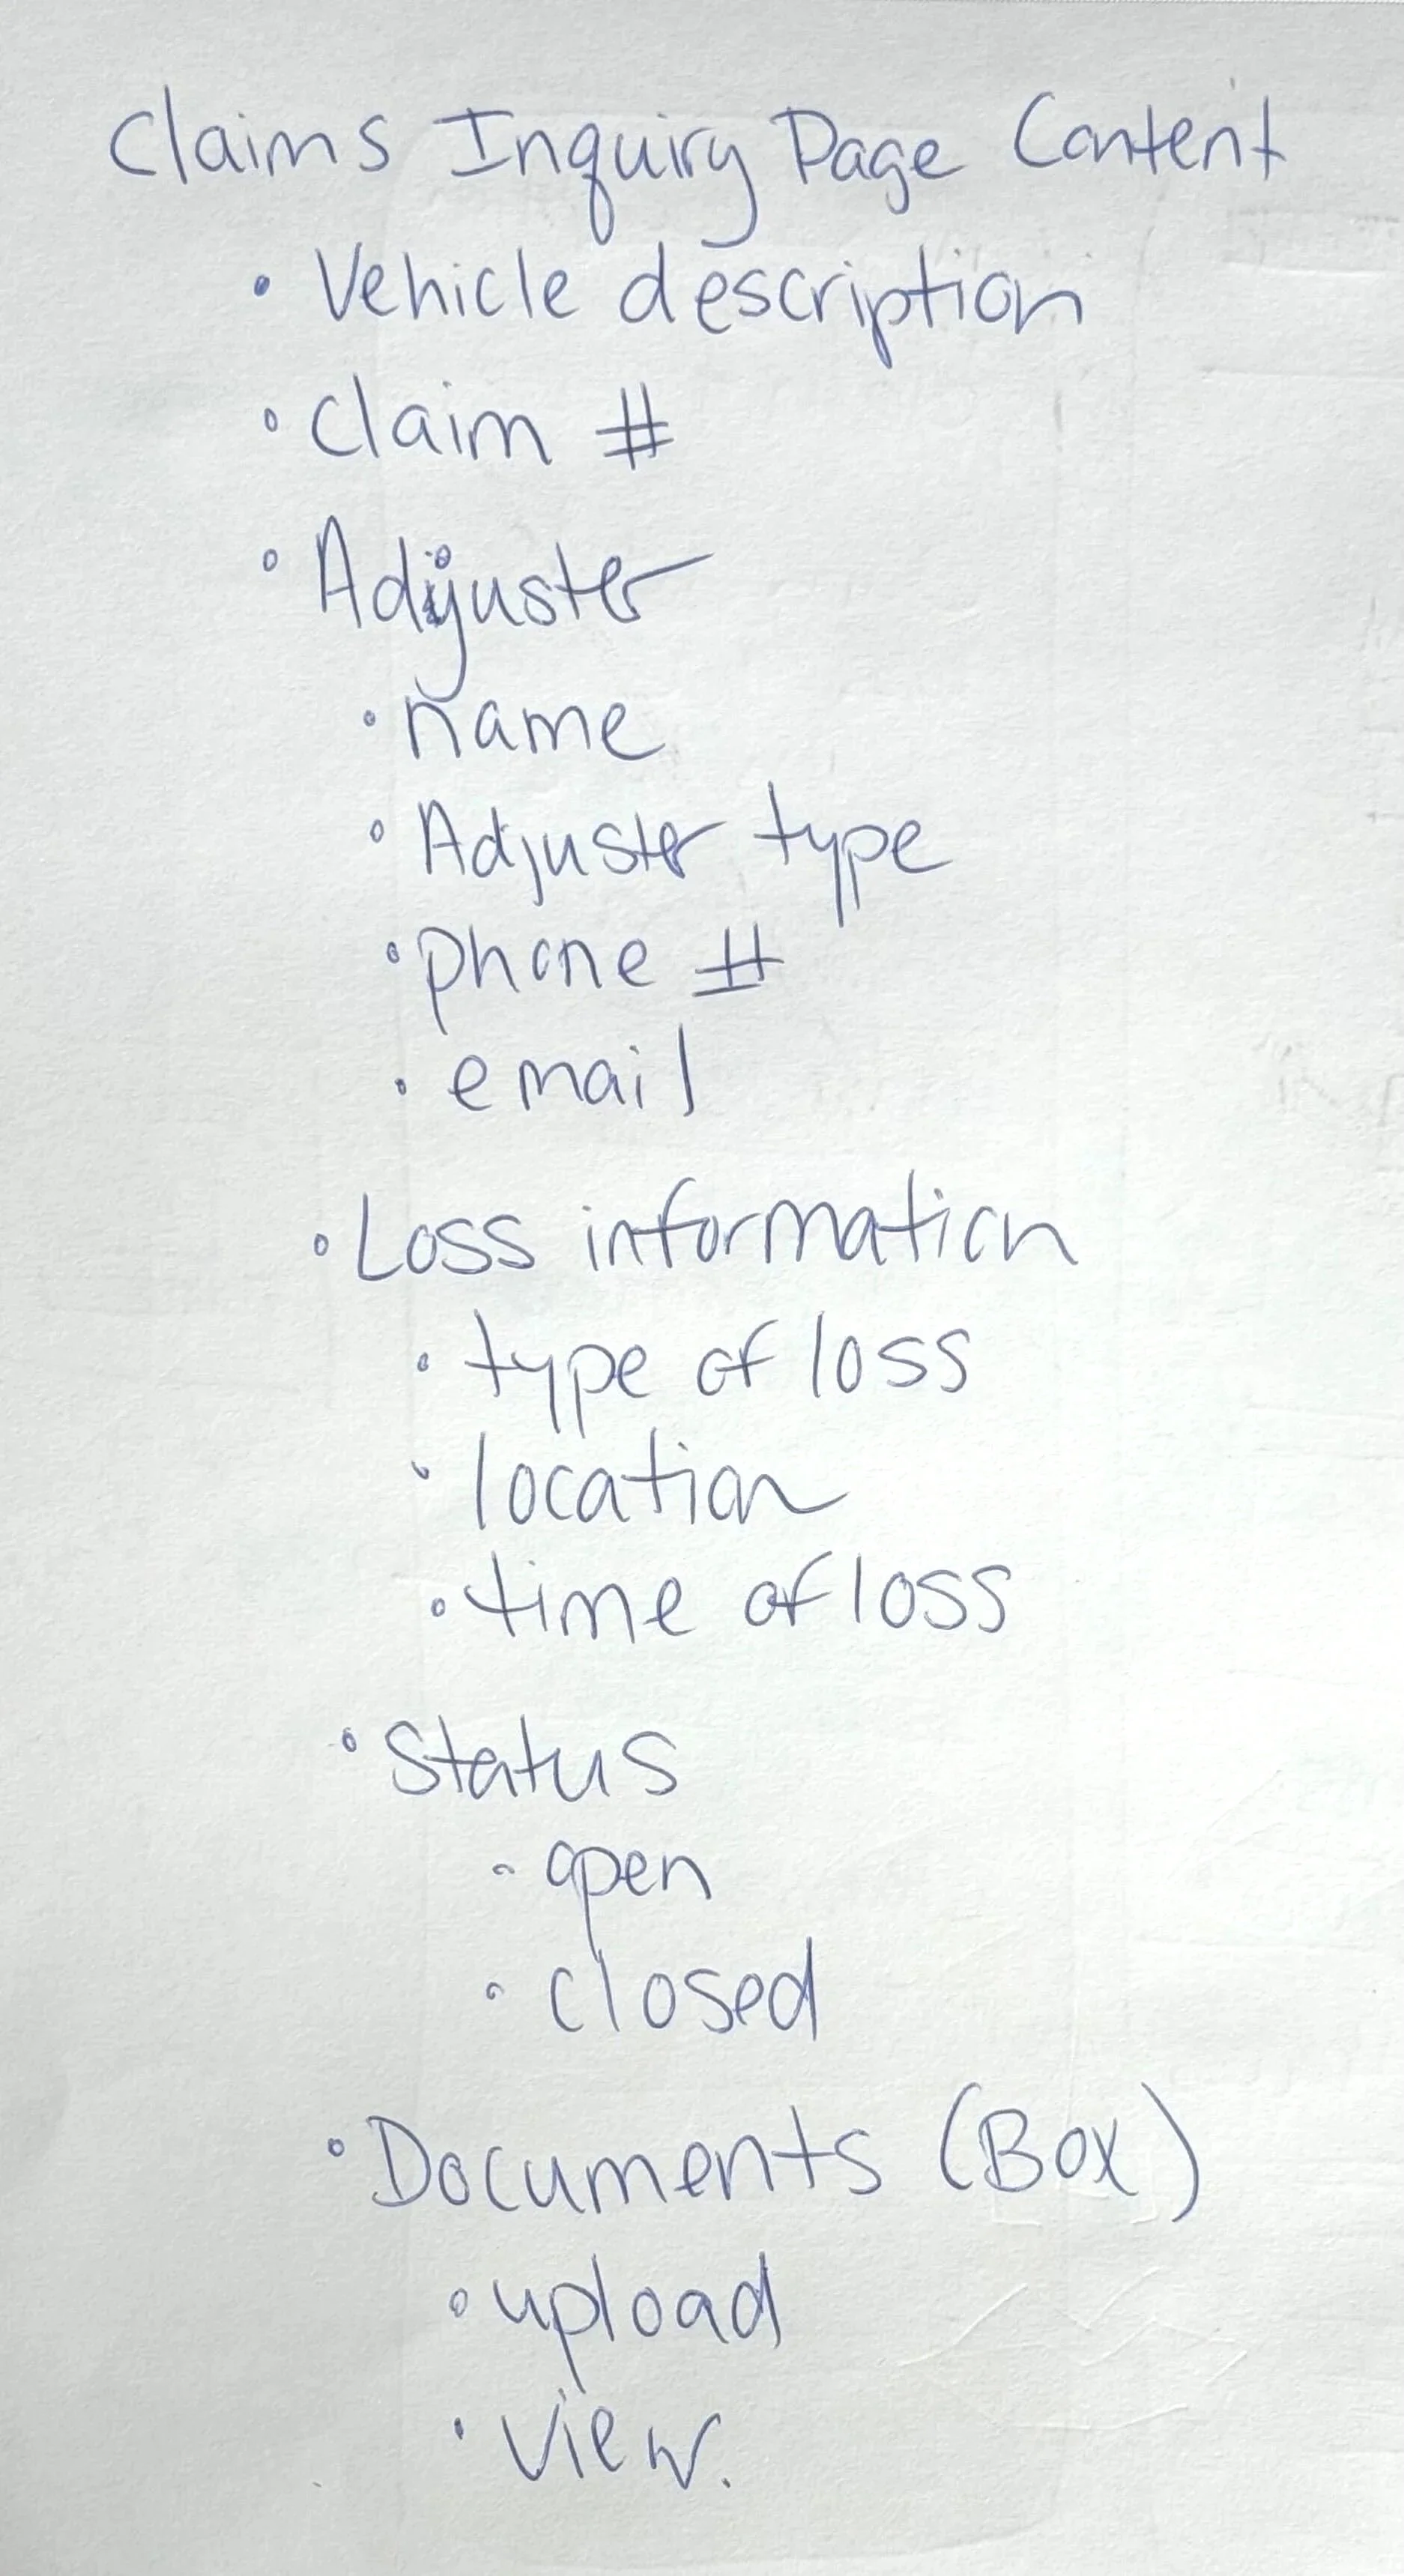 Claims Inquiry Page Content
• Vehicle description
• Claim #
• Adjuster
• name
• Adjuster type
• phone #
• email
• Loss information
• type of loss
• location
• time of loss
• Status
• open
• closed
• Documents (Box)
• upload
• view.